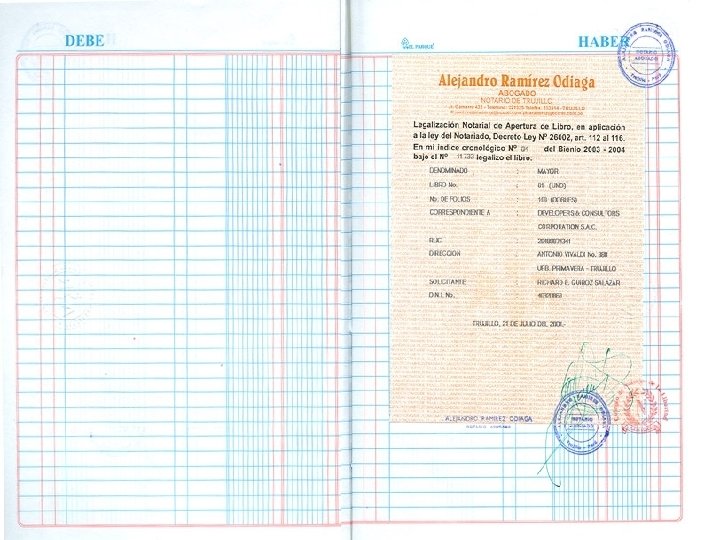 DEBE
EL PARQUE
HABER
Alejandro Ramírez Odiaga
ABOGADO
NOTARIO DE TRUJILLO
Legalización Notarial de Apertura de Libro, en aplicación
a la ley del Notariado, Decreto Ley Nº 26002, art. 112 al 116.
En mi índice cronológico Nº 01 del Bienio 2003 - 2004
bajo el Nº legalizo el libro.
DENOMINADO : MAYOR
LIBRO No. : 01 (UNO)
No. DE FOLIOS : (DOBLES)
CORRESPONDIENTE A : DEVELOPERS & CONSULTORS
CORPORATION S.A.C.
RUC :
DIRECCION : ANTONIO VIVALDI No.
URB. PRIMAVERA - TRUJILLO
SOLICITANTE : RICHARD E. QUIROZ SALAZAR
D.N.I. No. :
TRUJILLO, 21 DE JULIO DEL
ALEJANDRO RAMIREZ ODIAGA
NOTARIO ABOGADO